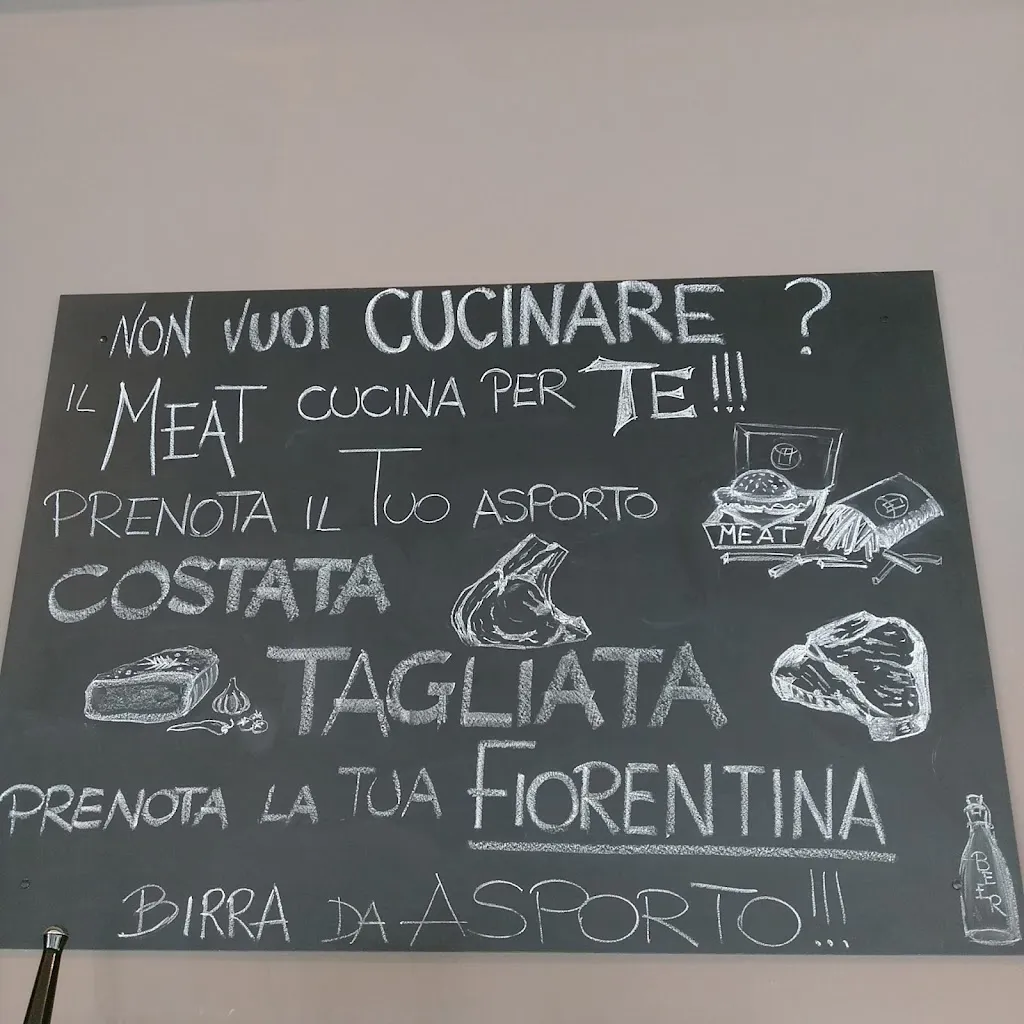 NON VUOI CUCINARE ?
IL MEAT CUCINA PER TE!!!
PRENOTA IL TUO ASPORTO
MEAT
COSTATA
TAGLIATA
PRENOTA LA TUA FIORENTINA
BEER
BIRRA DA ASPORTO!!!